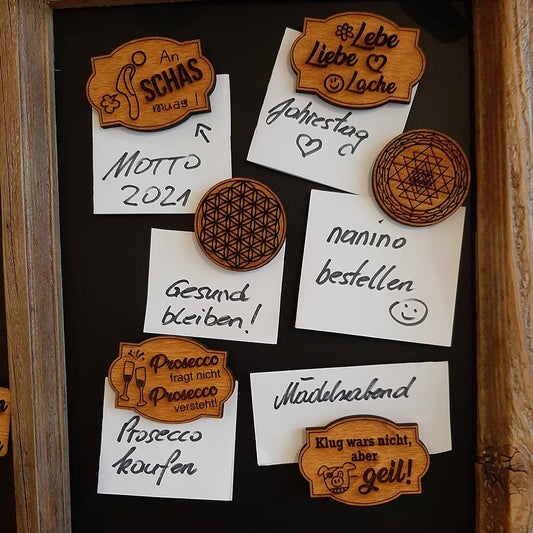 An
SCHAS
muas i
MOTTO
2021
Lebe
Liebe
Lache
Jahrestag
Gesund
bleiben!
nanino
bestellen
Prosecco
fragt nicht
Prosecco
versteht!
Prosecco
kaufen
Mädelsabend
Klug wars nicht,
aber
geil!